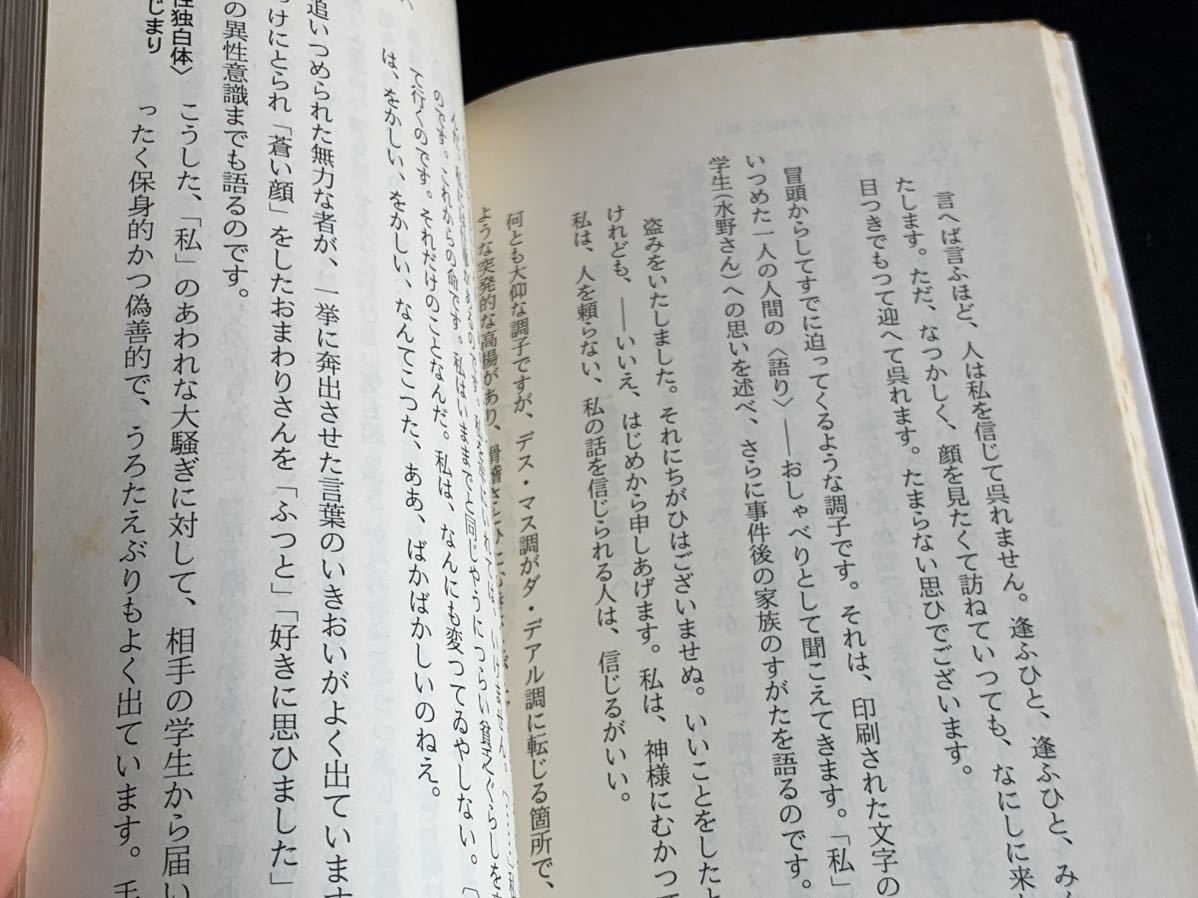 言へば言ふほど、人は私を信じて呉れません。逢ふひと、逢ふひと、みん
たします。ただ、なつかしく、顔を見たくて訪ねていつても、なにしに来
目つきでもつて迎へて呉れます。たまらない思ひでございます。
冒頭からしてすでに迫ってくるような調子です。それは、印刷された文字の
いつめた一人の人間の〈語り〉――おしゃべりとして聞こえてきます。「私」
学生（水野さん）への思いを述べ、さらに事件後の家族のすがたを語るのです。
盗みをいたしました。それにちがひはございませぬ。いいことをしたと
けれども、――いいえ、はじめから申しあげます。私は、神様にむかつて
私は、人を頼らない、私の話を信じられる人は、信じるがいい。
何とも大仰な調子ですが、デス・マス調がダ・デアル調に転じる箇所で、
ような突発的な高揚があり、滑稽さ
いけません。
のです。これからの命です。私はいままでと同じやうにつらい貧乏ぐらしを
て行くのです。それだけのことなんだ。私は、なんにも変つてゐやしない。
は、をかしい、をかしい、なんてこつた、ああ、ばかばかしいのねえ。
追いつめられた無力な者が、一挙に奔出させた言葉のいきおいがよく出ています
けにとられ「蒼い顔」をしたおまわりさんを「ふつと」「好きに思ひました」
の異性意識までも語るのです。
性独白体〉
じまり
こうした、「私」のあわれな大騒ぎに対して、相手の学生から届い
ったく保身的かつ偽善的で、うろたえぶりもよく出ています。